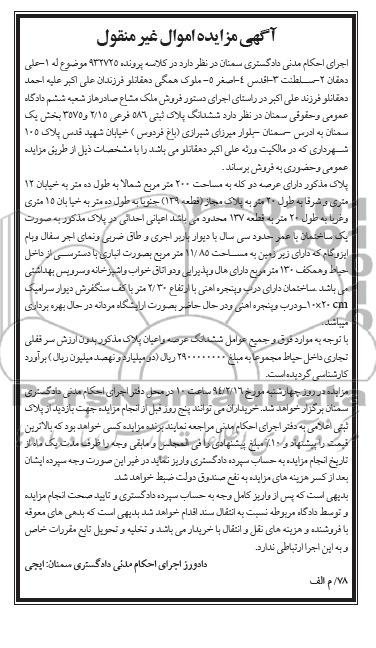 آگهی مزایده اموال غیر منقول
اجرای احکام مدنی دادگستری سمنان در نظر دارد در کلاسه پرونده ۹۳۲۷۲۵ موضوع له ۱-علی
دهقان ۲-سلطنت ۳-اقدس ۴-اصغر ۵- ملوک همگی دهقانلو فرزندان علی اکبر علیه احمد
دهقانلو فرزند علی اکبر در راستای اجرای دستور فروش ملک مشاع صادرهاز شعبه ششم دادگاه
عمومی وحقوقی سمنان در نظر دارد ششدانگ پلاک ثبتی ۵۸۶ فرعی ۲/۱۵ و۳۵۷۵ بخش یک
سمنان به ادرس -سمنان -بلوار میرزای شیرازی (باغ فردوس ) خیابان شهید قدس پلاک ۱۰۵
شهرداری که در مالکیت ورثه علی اکبر دهقانلو می باشد را با مشخصات ذیل از طریق مزایده
عمومی وحضوری به فروش برساند .
پلاک مذکور دارای عرصه دو کله به مساحت ۲۰۰ متر مربع شمالا به طول ده متر به خیابان ۱۲
متری و شرقا به طول ۲۰ متر به پلاک مجاز (قطعه ۱۳۹) جنوبا به طول ده متر به خیا بان ۱۵ متری
وغربا به طول ۲۰ متر به قطعه ۱۳۷ محدود می باشد اعیانی احداثی در پلاک مذکور به صورت
یک ساختمان با عمر حدود سی سال با دیوار باربر اجری و طاق ضربی ونمای اجر سفال وبام
ایزوگام که دارای زیر زمین به مساحت ۱۱/۸۵ متر مربع بصورت انباری با دسترسی از داخل
حیاط وهمکف ۱۳۰ متر مربع دارای هال وپذیرایی ودو اتاق خواب واشپزخانه وسرویس بهداشتی
می باشد .ساختمان دارای درب وپنجره اهنی با ارتفاع ۲/۳۰ متر با کف سنگفرش دیوار سرامیک
۱۰×۲۰ cm ودرب وپنجره اهنی ودر حال حاضر بصورت ارایشگاه مردانه در حال بهره برداری
میباشد.
با توجه به موارد فوق و جمیع عوامل ششدانگ عرصه واعیان پلاک مذکور بدون ارزش سر قفلی
تجاری داخل حیاط مجموعا به مبلغ ۲۹۰۰۰۰۰۰۰۰ ریال (دو میلیارد و نهصد میلیون ریال ) برآورد
کارشناسی گردیده است.
مزایده در روز چهارشنبه مورخ ۹۴/۲/۱۶ ساعت ۱۰ در محل دفتر اجرای احکام مدنی دادگستری
سمنان برگزار خواهد شد. خریداران می توانند پنج روز قبل از انجام مزایده جهت بازدید از پلاک
ثبتی اعلامی به دفتر اجرای احکام مدنی مراجعه نمایند برنده مزایده کسی خواهد بود که بالاترین
قیمت را پیشنهاد و ۱۰٪ مبلغ پیشنهادی را فی المجلس و مابقی وجه را ظرف مدت یک ماه از
تاریخ انجام مزایده به حساب سپرده دادگستری واریز نماید در غیر این صورت وجه سپرده ایشان
بعد از کسر هزینه های مزایده به نفع صندوق دولت ضبط خواهد شد.
بدیهی است که پس از واریز کامل وجه به حساب سپرده دادگستری و تایید صحت انجام مزایده
و توسط دادگاه مربوطه نسبت به انتقال سند اقدام خواهد شد بدیهی است که بدهی های معوقه
با فروشنده و هزینه های نقل و انتقال با خریدار می باشد و تخلیه و تحویل تابع مقررات خاص
و به این اجرا ارتباطی ندارد.
دادورز اجرای احکام مدنی دادگستری سمنان: ایجی
۷۸/ م الف